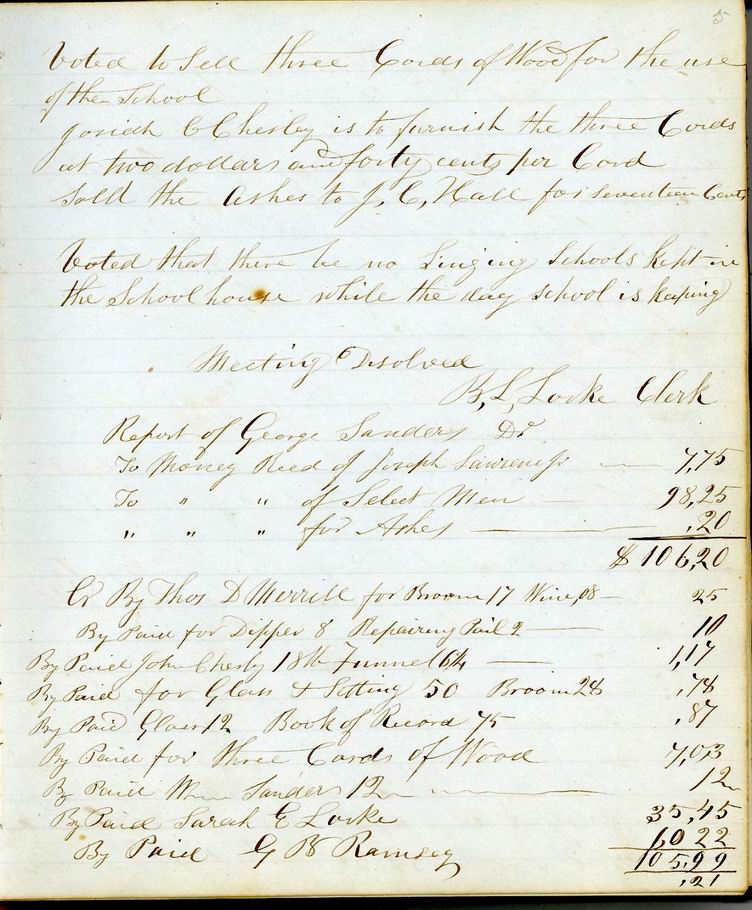 5
Voted to Sell three Cords of Wood for the use
of the School
Josiah C Chesley is to furnish the three Cords
at two dollars and forty cents per Cord
Sold the Ashes to J. C, Hall for Seventeen Cents
Voted that there be no Singing Schools kept in
the School house while the day school is keeping
Meeting Disolved
B, L, Locke Clerk
Report of George Sanders Dr
To Money Recd of Joseph 7,75
To " " of Select Men 98,25
" " " for Ashes ,20
$ 106,20
Cr By Thos D Merrill for Broom 17 Wire,08 25
By Paid for Dipper 8 Repairing Pail 2 10
By Paid John Chesly 18 lb Funnel 6½ 1,17
By Paid for Glass & Setting 50 Broom 28 ,78
By Paid Glass 12 Book of Record 75 ,87
By Paid for three Cords of Wood 7,03
By Paid Wm Sanders 12 12
By Paid Sarah E Locke 35,45
By Paid G B Ramsey 60 22
105,99
,21